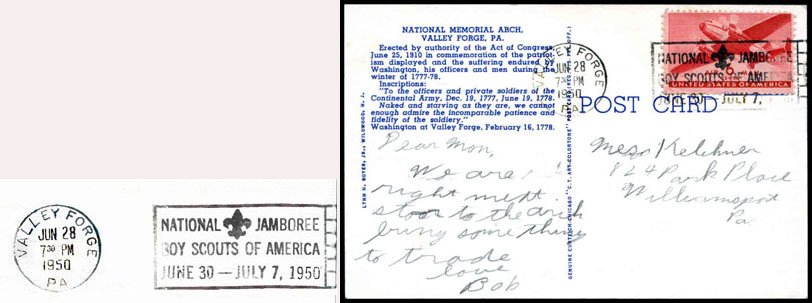 VALLEY FORGE
JUN 28
7 30 PM
1950
PA
NATIONAL JAMBOREE
BOY SCOUTS OF AMERICA
JUNE 30 — JULY 7, 1950
NATIONAL MEMORIAL ARCH,
VALLEY FORGE, PA.
Erected by authority of the Act of Congress,
June 25, 1910 in commemoration of the patriot-
ism displayed and the suffering endured by
Washington, his officers and men during the
winter of 1777-78.
Inscriptions:
"To the officers and private soldiers of the
Continental Army, Dec. 19, 1777, June 19, 1778."
Naked and starving as they are, we cannot
enough admire the incomparable patience and
fidelity of the soldiery."
Washington at Valley Forge, February 16, 1778.
LYNN H. BOYER, JR., WILDWOOD, N. J.
GENUINE CURTEICH-CHICAGO "C.T. ART-COLORTONE" POST CARD (REG. U.S. PAT. OFF.)
VALLEY FORGE
JUN 28
7 30 PM
1950
PA
NATIONAL JAMBOREE
BOY SCOUTS OF AMERICA
JUNE 30 — JULY 7,
UNITED STATES OF AMERICA
POST CARD
Dear Mom,
We are
right next
stoor to the arch
bring some thing
to trade
love
Bob
Mess Kelchner
824 Park Place
Williamsport
Pa